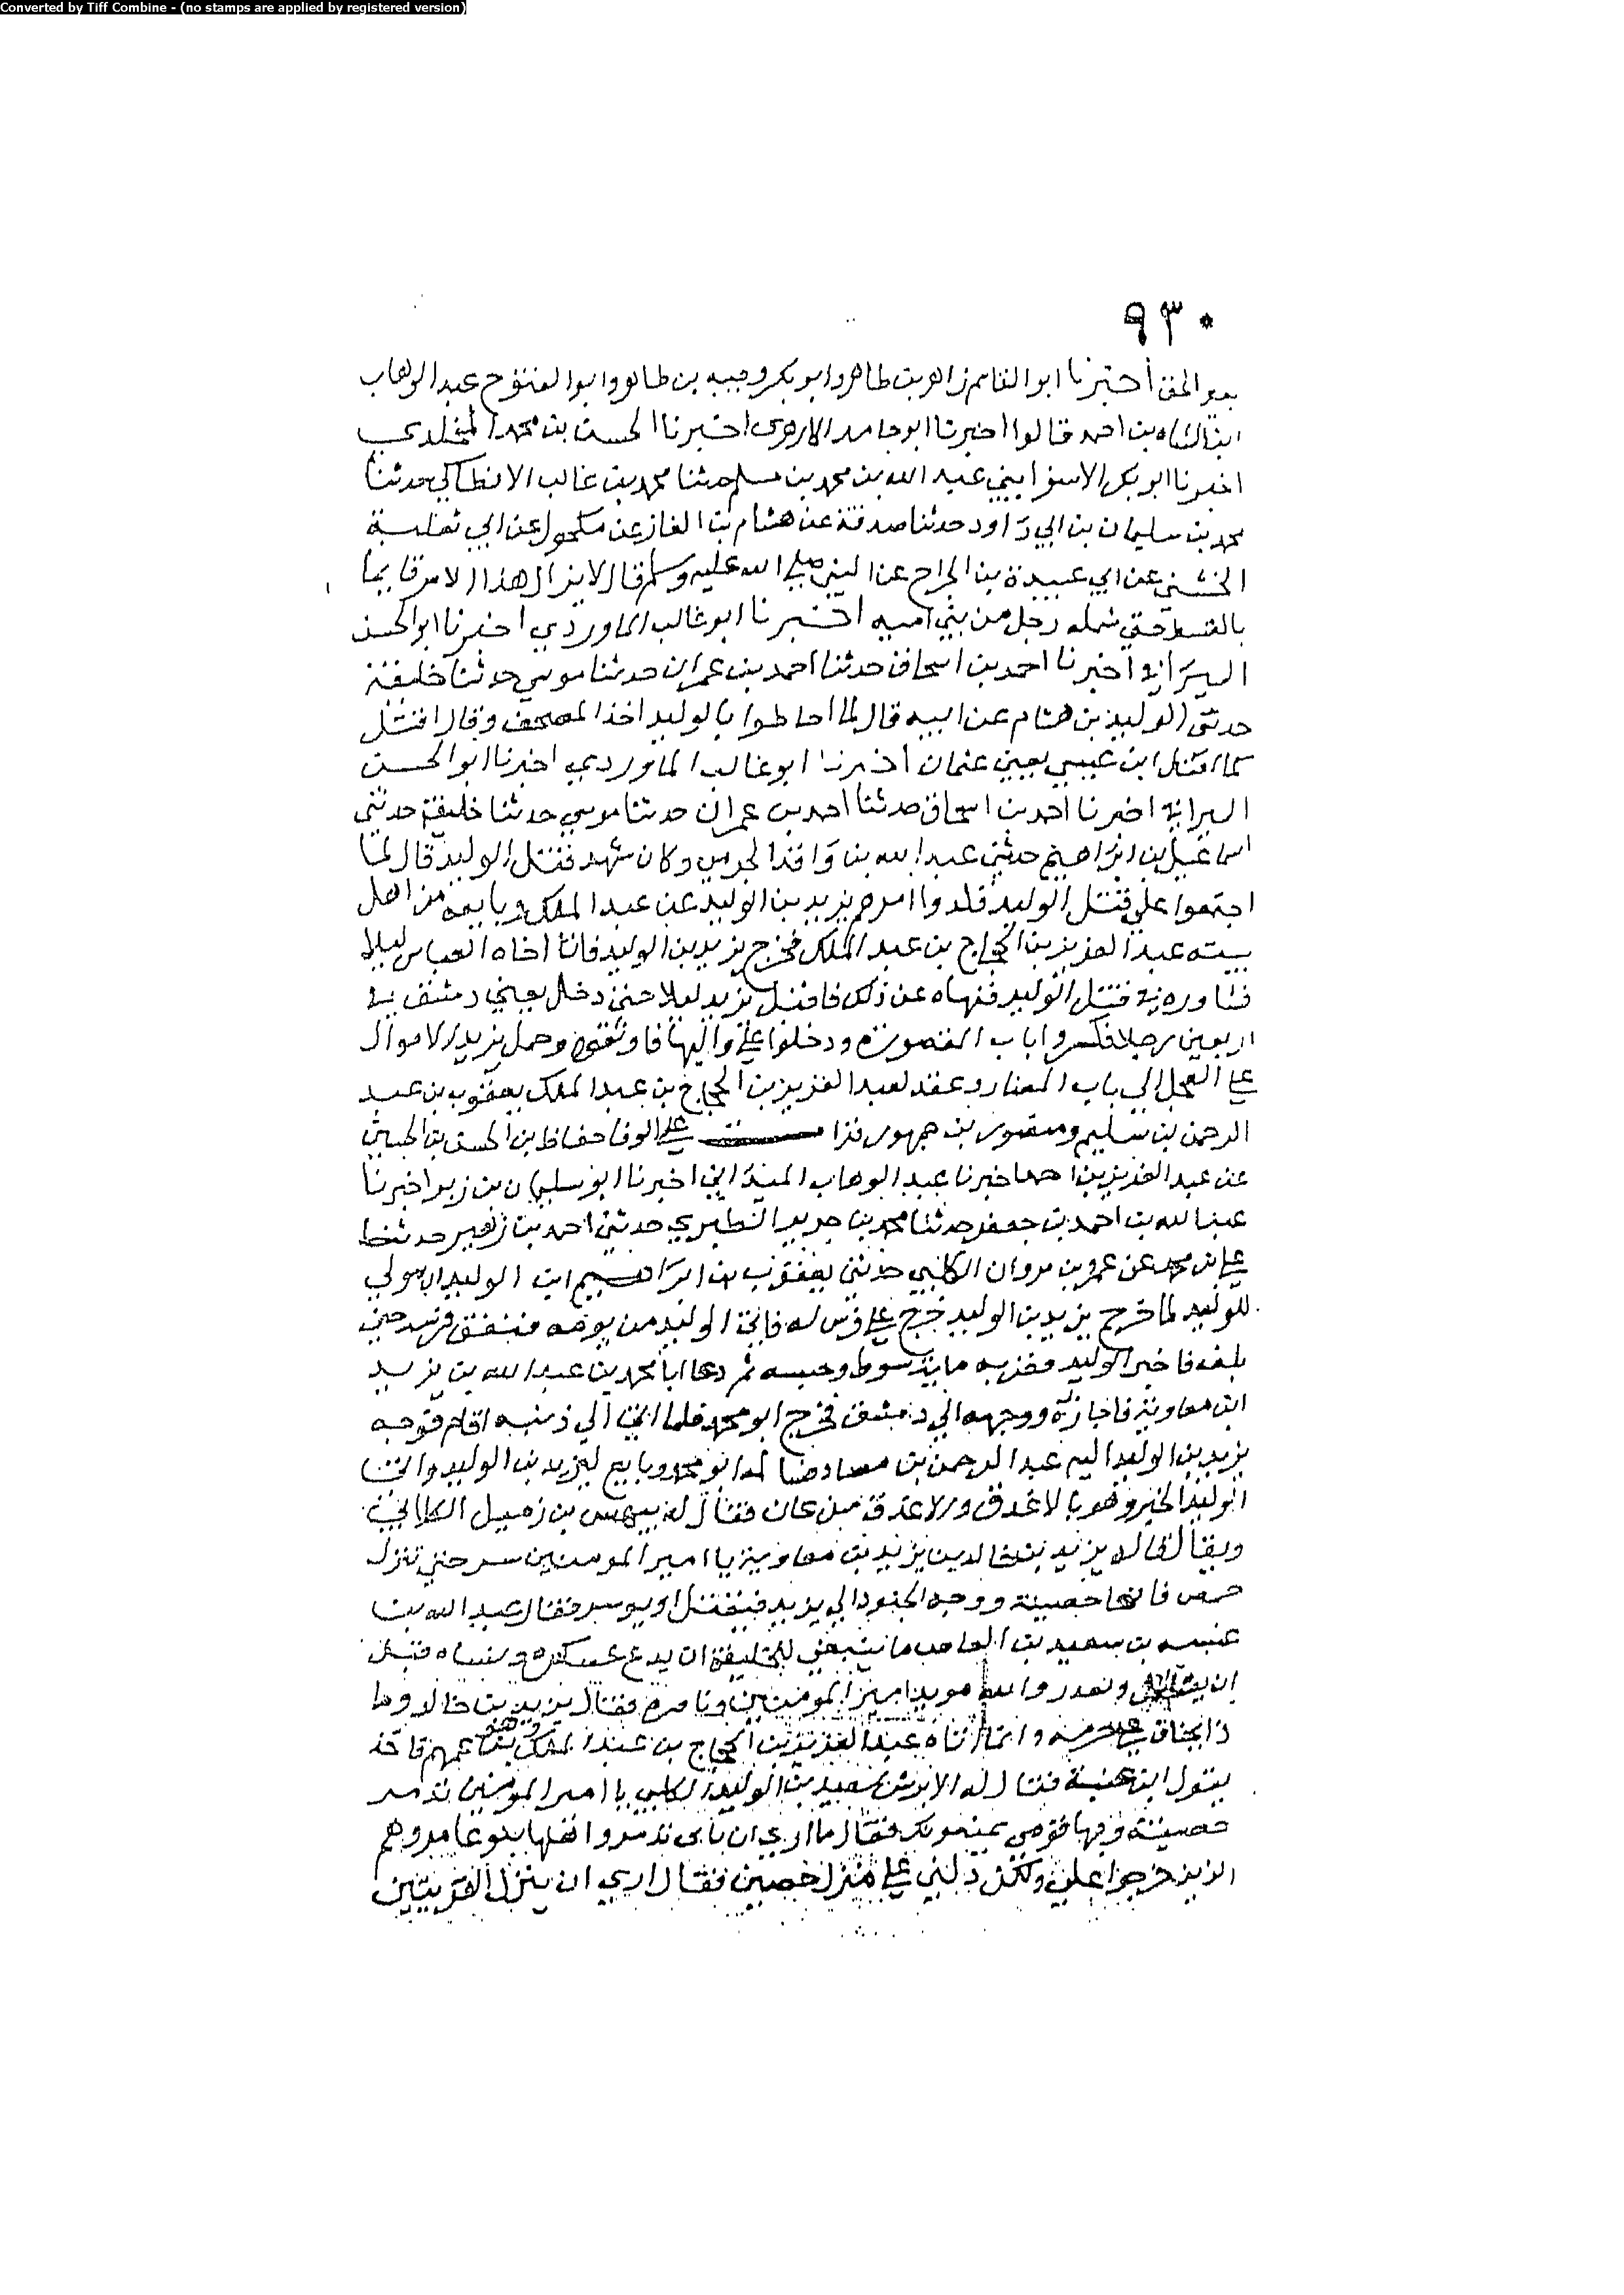 Converted by Tiff Combine - (no stamps are applied by registered version)
٩٣٠
اخبرنا ابو القاسم زاهر بن طاهر وابو بكر وجيه بن طاهر وابو الفتوح عبد الوهاب
ابن الشاه بن احمد قالوا اخبرنا ابو حامد الازهري اخبرنا الحسن بن محمد المخلدي
اخبرنا ابو بكر الاسفرايني عبد الله بن محمد بن مسلم حدثنا محمد بن غالب الانطاكي حدثنا
محمد بن سليمان بن ابي داود حدثنا صدقة عن هشام بن الغاز عن مكحول عن ابي ثعلبة
الخشني عن ابي عبيدة بن الجراح عن النبي صلى الله عليه وسلم قال لا يزال هذا الامر قايما
بالقسط حتي يثلمه رجل من بني اميه اخبرنا ابو غالب الماوردي اخبرنا ابو الحسن
السيرافي اخبرنا احمد بن اسحاق حدثنا احمد بن عمران حدثنا موسي حدثنا خليفة
حدثني الوليد بن هشام عن ابيه قال لما احاطوا بالوليد اخذ المصحف وقال اقتل
كما اقتل ابن عمي يعني عثمان اخبرنا ابو غالب الماوردي اخبرنا ابو الحسن
السيرافي اخبرنا احمد بن اسحاق حدثنا احمد بن عمران حدثنا موسي حدثنا خليفة حدثني
اسماعيل بن ابراهيم حدثني عبد الله بن واقد الجرمي وكان شهد قتل الوليد قال لما
اجتمعوا علي قتل الوليد قلدوا امرهم يزيد بن الوليد بن عبد الملك وبايعه من اهل
بيته عبد العزيز بن الحجاج بن عبد الملك فخرج يزيد بن الوليد فاتا اخاه العباس ليلا
فشاوره في قتل الوليد فنهاه عن ذلك فاقبل يزيد ليلا حتي دخل يعني دمشق في
اربعين رجلا فكسروا باب المقصورة ودخلوا علي واليها فاوثقوه وحمل يزيد الاموال
علي العجل الي باب المضمار وعقد لعبد العزيز بن الحجاج بن عبد الملك يعقوب بن عبد
الرحمن بن سليم ومنصور بن جمهور قرا علي الوفا حفاظ بن الحسن بن الحسين
عن عبد العزيز بن احمد اخبرنا عبد الوهاب الميداني اخبرنا ابو سليمان بن زبر اخبرنا
عبد الله بن احمد بن جعفر حدثنا محمد بن جرير الطبري حدثني احمد بن زهير حدثنا
علي بن محمد عن عمرو بن مروان الكلبي حدثني يعقوب بن ابراهيم ابن الوليد ان مولي
للوليد لما خرج يزيد بن الوليد خرج علي فرس له فاتي الوليد من يومه فنفق فرسه حين
بلغه فاخبر الوليد فضربه ماية سوط وحبسه ثم دعا ابا محمد بن عبد الله بن يزيد
ابن معاوية فاجازه ووجهه الي دمشق فخرج ابو محمد فلما انتها الي ذنبه اقام فوجه
يزيد بن الوليد اليه عبد الرحمن بن مصاد فسالمه ابو محمد وبايع ليزيد بن الوليد واتي
الوليد الخبر وهو بالاغدق والاغدق من عمان فقال له بيهس بن زميل الكلابي
ويقال قال له يزيد بن خالد بن يزيد بن معاوية يا امير المومنين سر حتي تنزل
حمص فانها حصينة ووجه الجنود الي يزيد فيقتل او يوسر فقال عبد الله بن
عنبسه بن سعيد بن العاص ما ينبغي للخليفة ان يدع عسكره ونساه قبل
ان يقاتل ويعذر والله مويد امير المومنين وناصره فقال يزيد بن خالد وما
ذا يخاف علي حرمه وانما اتاه عبد العزيز بن الحجاج بن عبد الملك وهو بن عمهم فاخذ
بقول ابن عنبسة فقال له الابرش سعيد بن الوليد الكلبي يا امير المومنين تدمر
حصينة وفيها قومي يمنعونك فقال ما اري ان ناتي تدمر واهلها بنو عامر وهم
الذين خرجوا علي ولكن دلني علي منزل حصين فقال اري ان ينزل القريتين